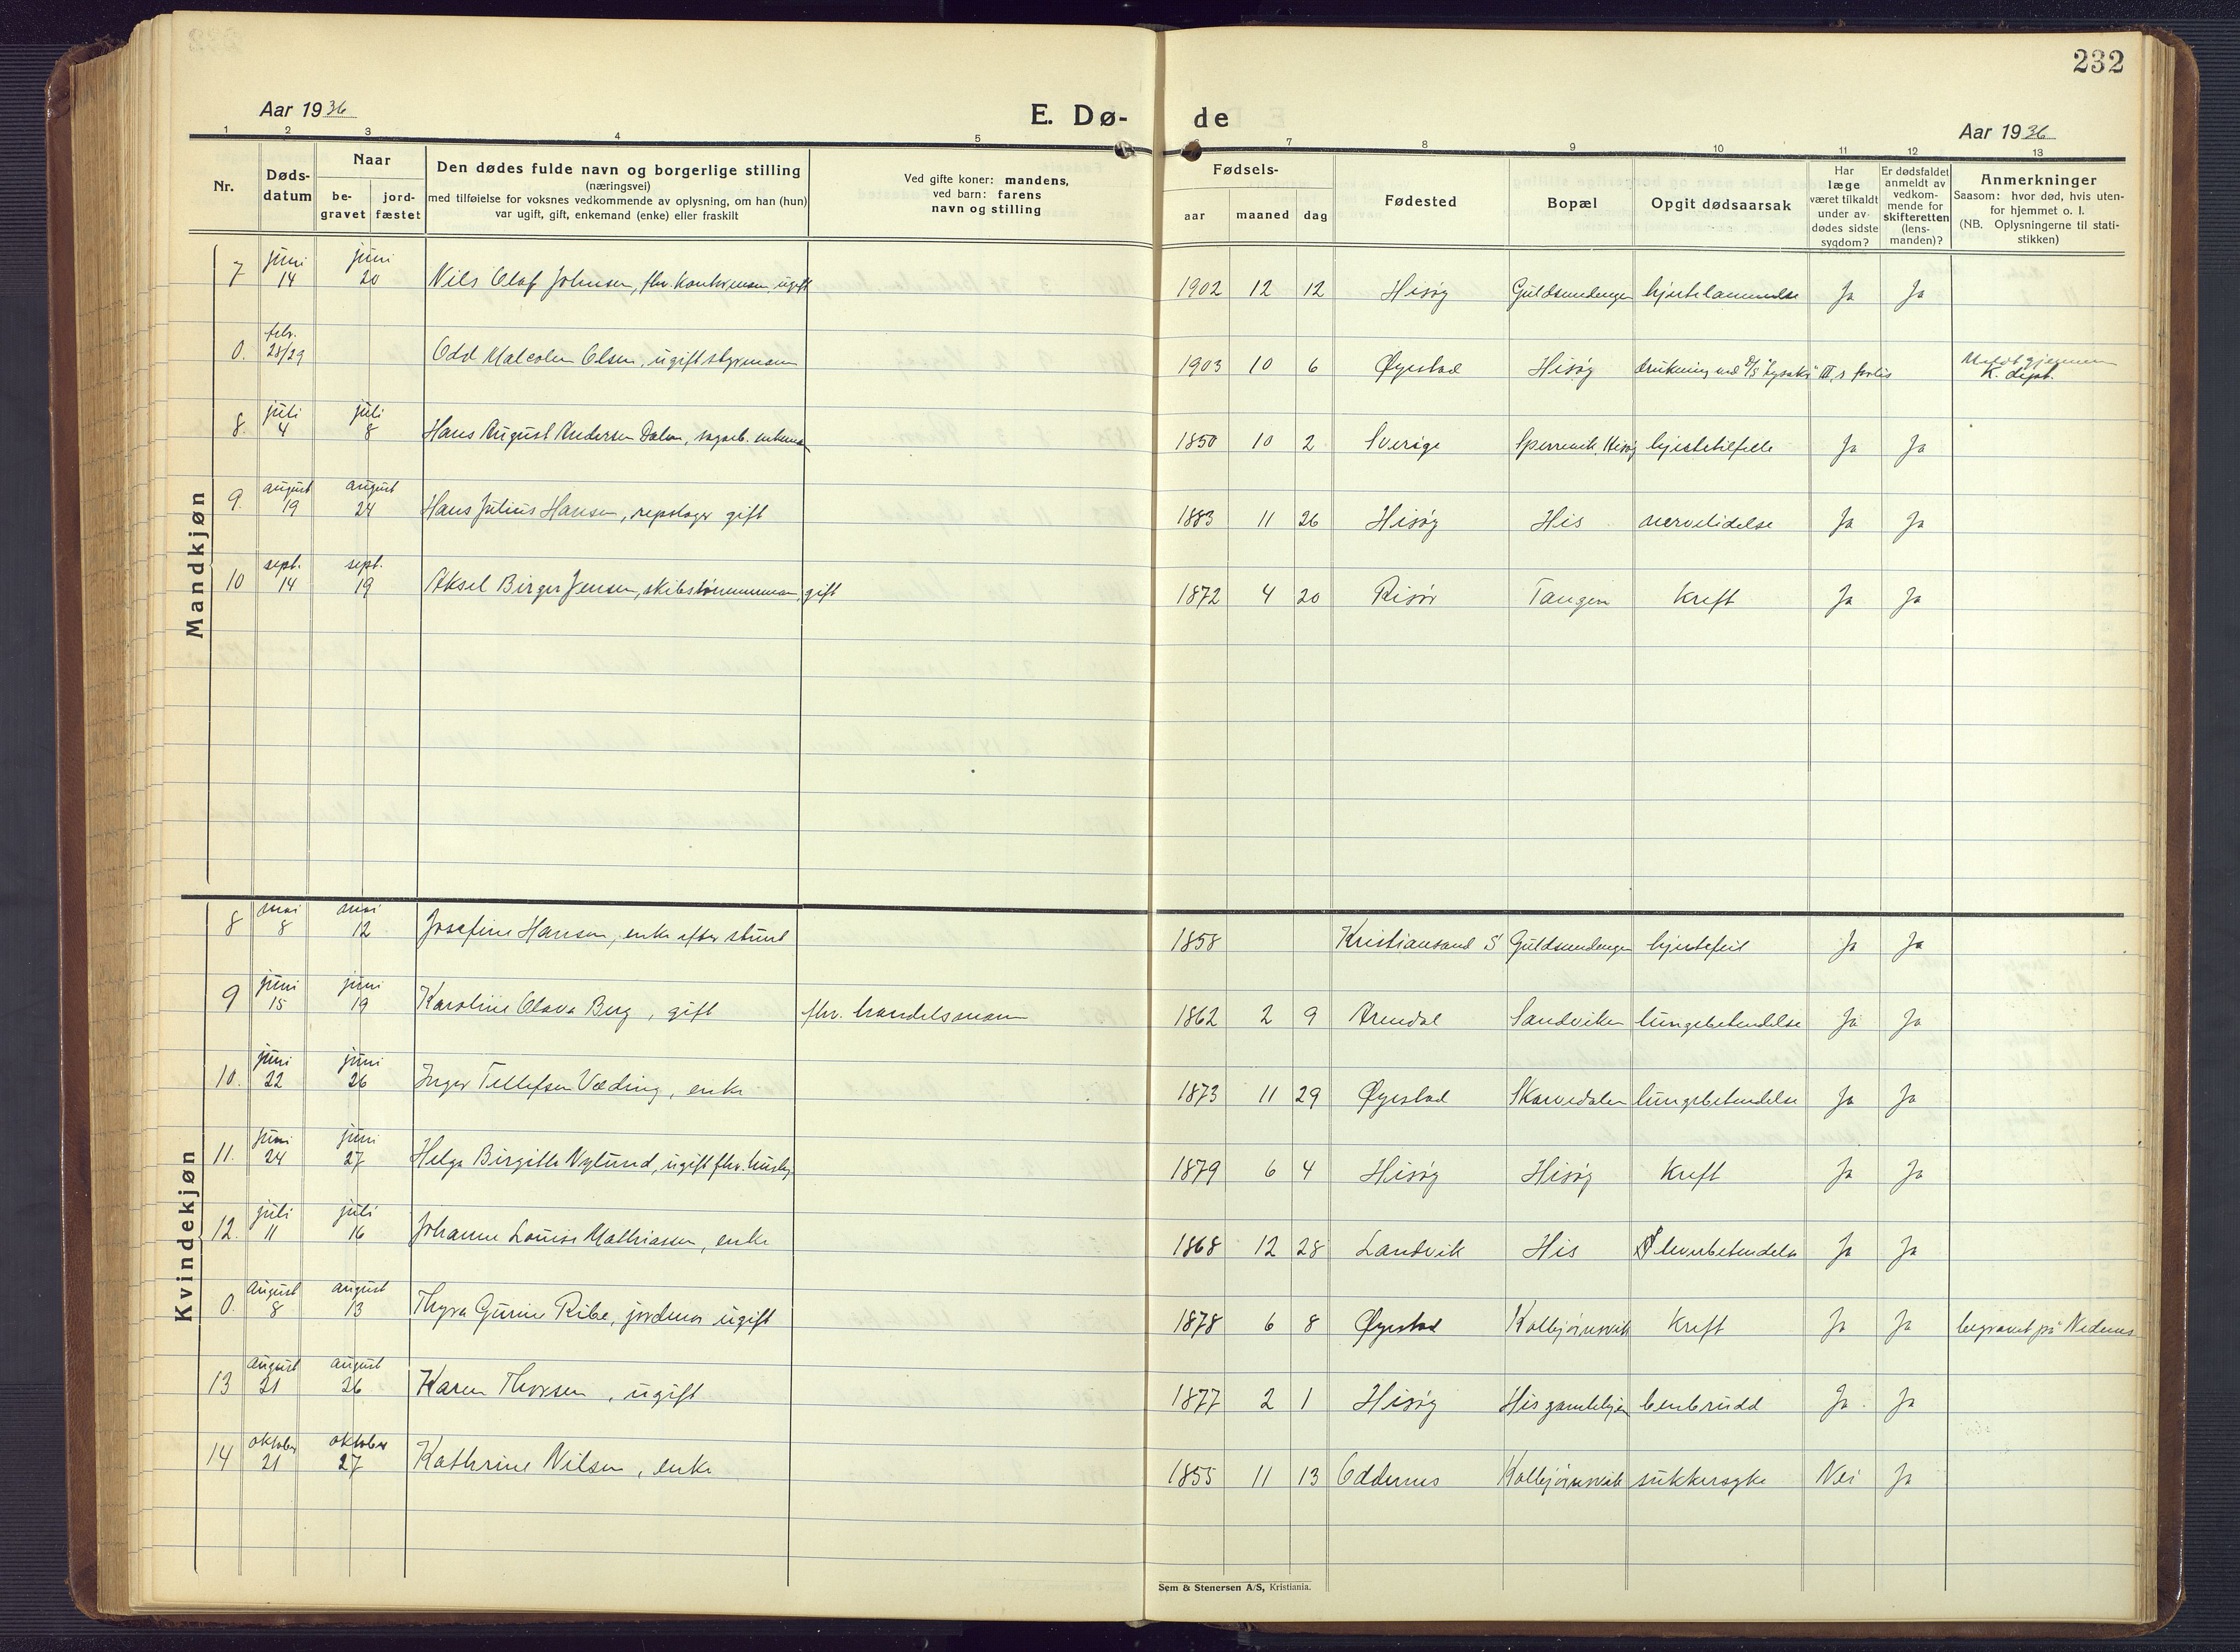 232
Aar 1936
E. Dø-
de
Aar 1936
1 2 3 4 5 6 7 8 9 10 11 12 13
Nr.
Døds-
datum
Naar
be-
gravet
jord-
fæstet
Den dødes fulde navn og borgerlige stilling
(næringsvei)
med tilføielse for voksnes vedkommende av oplysning, om han (hun)
var ugift, gift, enkemand (enke) eller fraskilt
Ved gifte koner: mandens,
ved barn: farens
navn og stilling
Fødsels-
aar maaned dag
Fødested
Bopæl
Opgit dødsaarsak
Har
læge
været tilkaldt
under av-
dødes sidste
sygdom?
Er dødsfaldet
anmeldt av
vedkom-
mende for
skifteretten
(lens-
manden)?
Anmerkninger
Saasom: hvor død, hvis uten-
for hjemmet o. l.
(NB. Oplysningerne til stati-
stikken)
Mandkjøn
juni juni
7 14 20 Nils Olaf Johnsen, fhv. kontormann, ugift 1902 12 12 Hisøy Guldsmedengen hjertelammelse Ja Ja
febr.
0. 28/29 Odd Malcolm Olsen, ugift styrmann 1903 10 6 Øyestad Hisøy drukning med D/S "Lysaker III"s forlis
K. dept.
juli juli
8. 4 8 Hans August Andersen Dalen, sagarb. enkemann 1850 10 2 Sverige Sperrevik, Hisøy hjertetilfelle Ja Ja
august august
9. 19 24 Hans Julius Hansen, repslager gift 1883 11 26 Hisøy His nervelidelse Ja Ja
sept. sept.
10 14 19 Aksel Birger Jensen, skibstømmermann, gift 1872 4 20 Risør Tangen Kreft Ja Ja
Kvindekjøn
mai mai
8 8 12 Josefine Hansen, enke efter stuert 1858 Kristiansand S Guldsmedengen hjertefeil Ja Ja
juni juni
9 15 19 Karoline Olava Berg, gift fhv. handelsmann 1862 2 9 Arendal Sandviken lungebetendelse Ja Ja
juni juni
10. 22 26 Inger Tellefsen Væding, enke 1873 11 29 Øyestad Skarvedalen lungebetendelse Ja Ja
juni juni
11. 24 27 Helga Birgitte Nylund, ugift fhv. 1879 6 4 Hisøy Hisøy Kreft Ja Ja
juli juli
12. 11 16 Johanne Louise Mathiassen, enke 1868 12 28 Landvik His leverbetendelse Ja Ja
august august
0. 8 13 Thyra Gurine Ribe, jordmor ugift 1878 6 8 Øyestad Kolbjørnsvik Kreft Ja Ja begravet på Nedenes
august august
13 21 26 Karen Thorsen, ugift 1877 2 1 Hisøy His gamlehjem benbrudd Ja Ja
oktober oktober
14 21 27 Kathrine Nilsen, enke 1855 11 13 Oddernes Kolbjørnsvik sukkersyke Nei Ja
Sem & Stenersen A/S, Kristiania.